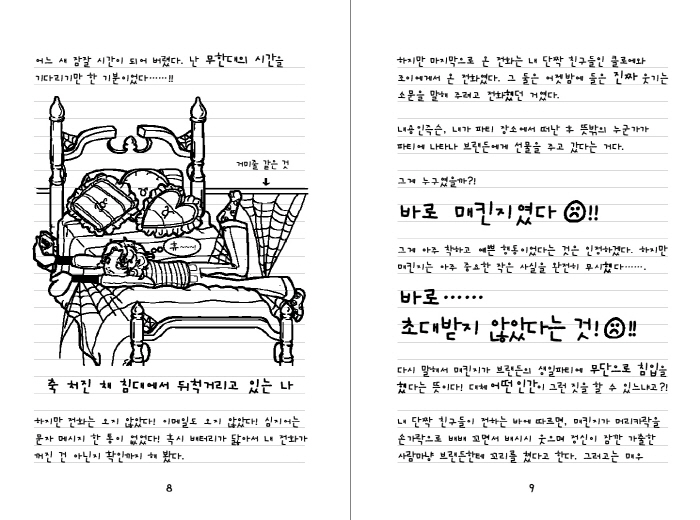 어느 새 잠잘 시간이 되어 버렸다. 난 무한대의 시간을
기다리기만 한 기분이었다……!!
거미줄 같은 것
휴~~~
축 처진 채 침대에서 뒤척거리고 있는 나
하지만 전화는 오지 않았다! 이메일도 오지 않았다! 심지어는
문자 메시지 한 통이 없었다! 혹시 배터리가 닳아서 내 전화가
꺼진 건 아닌지 확인까지 해 봤다.
8
하지만 마지막으로 온 전화는 내 단짝 친구들인 클로에와
조이에게서 온 전화였다. 그 둘은 어젯밤에 들은 진짜 웃기는
소문을 말해 주려고 전화했던 거였다.
내용인즉슨, 내가 파티 장소에서 떠난 후 뜻밖의 누군가가
파티에 나타나 브랜든에게 선물을 주고 갔다는 거다.
그게 누구였을까?!
바로 매킨지였다 ☹!!
그게 아주 착하고 예쁜 행동이었다는 것은 인정하겠다. 하지만
매킨지는 아주 중요한 작은 사실을 완전히 무시했다…….
바로……
초대받지 않았다는 것! ☹!!
다시 말해서 매킨지가 브랜든의 생일파티에 무단으로 침입을
했다는 뜻이다! 대체 어떤 인간이 그런 짓을 할 수 있느냐고?!
내 단짝 친구들이 전하는 바에 따르면, 매킨지가 머리카락을
손가락으로 배배 꼬면서 배시시 웃으며 정신이 잠깐 가출한
사람마냥 브랜든한테 꼬리를 쳤다고 한다. 그러고는 매우
9